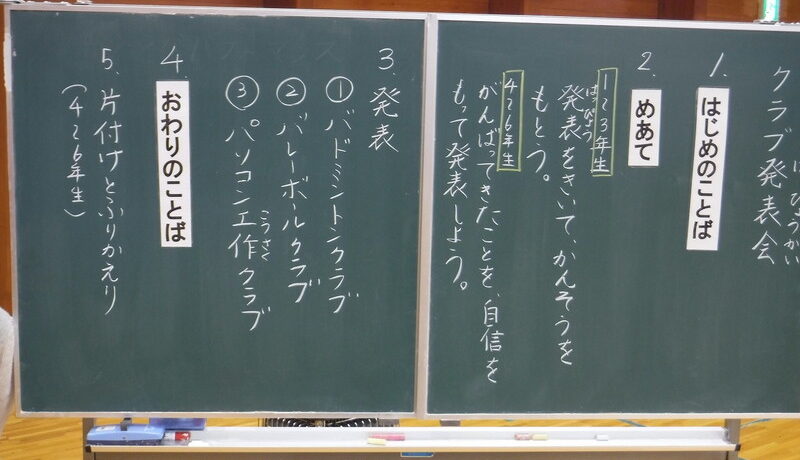 クラブ発表会
1. はじめのことば
2. めあて
1~3年生
はっぴょう
発表をきいて、かんそうを
もとう。
4~6年生
がんばってきたことを、自信を
もって発表しよう。
3. 発表
①バドミントンクラブ
②バレーボールクラブ
こうさく
③パソコン工作クラブ
4. おわりのことば
5. 片付けとふりかえり
(4~6年生)